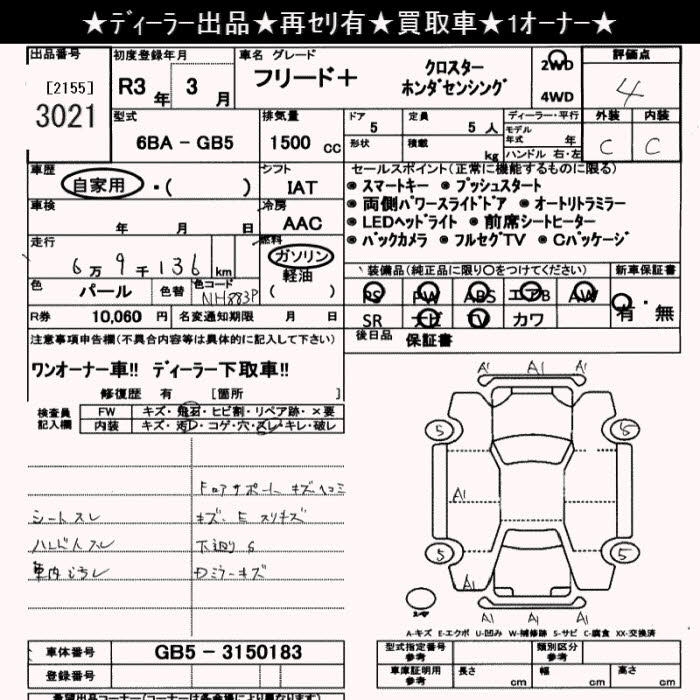 ★ディーラー出品★再セリ有★買取車★1オーナー★
出品番号
[2155]
3021
初度登録年月
R3 年 3 月
車名 グレード
フリード＋ クロスター
ホンダセンシング
2WD
4WD
評価点
4
型式
6BA - GB5
排気量
1500 cc
ドア
5
定員
5 人
形状
積載
kg
ディーラー・平行
モデル年式 年
ハンドル 右・左
外装 内装
C C
車歴
自家用 ・( )
シフト
IAT
セールスポイント(正常に機能するものに限る)
● スマートキー ● プッシュスタート
● 両側パワースライドドア ● オートリトラミラー
● LEDヘッドライト ● 前席シートヒーター
● バックカメラ ● フルセグTV ● Cパッケージ
車検
年 月 日
冷房
AAC
走行
6万9千136 km
燃料
ガソリン
軽油
( )
色
パール
色替
色コード
NH883P
装備品(純正品に限り○をつけてください)
PS PW ABS エアB AW
SR ナビ TV カワ
新車保証書
有・無
R券
10,060 円
名変通知期限 月 日
後日品 保証書
注意事項申告欄(不具合内容等は具体的に記入して下さい)
ワンオーナー車!! ディーラー下取車!!
修復歴 有 [箇所 ]
検査員
記入欄
FW キズ・飛石・ヒビ割・リペア跡・×要
内装 キズ・汚レ・コゲ・穴・スレ・キレ・破レ
シートスレ
ハンドルスレ
車内汚レ
キズ・E スリキズ
下廻りS
Dミラーキズ
A1 A1 A1
5 5
A1
5 5
A1
A1 A1 A1
A-キズ E-エクボ U-凹み W-補修跡 S-サビ C-腐食 XX-交換済
車体番号
GB5 - 3150183
登録番号
型式指定番号
参考
類別区分
参考
車庫証明用
参考
長さ cm
幅 cm
高さ cm
希望出品コーナー(コーナーは条件により異なります)